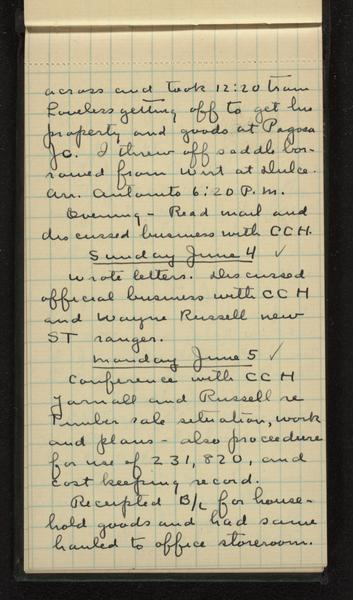 across and took 12:20 train
Loveless getting off to get his
property and goods at Pagosa
Jc. I threw off saddle bor-
rowed from Wirt at Dulce.
Arr. Antonito 6:20 P.M.
Evening - Read mail and
discussed business with CCH.
Sunday June 4 ✓
Wrote letters. Discussed
official business with CCH
and Wayne Russell new
ST ranger.
Monday June 5 ✓
Conference with CCH
Yarnall and Russell re
Timber sale situation, work
and plans - also proceedure
for use of 231, 820, and
cost keeping record.
Receipted B/L for house-
hold goods and had same
hauled to office storeroom.